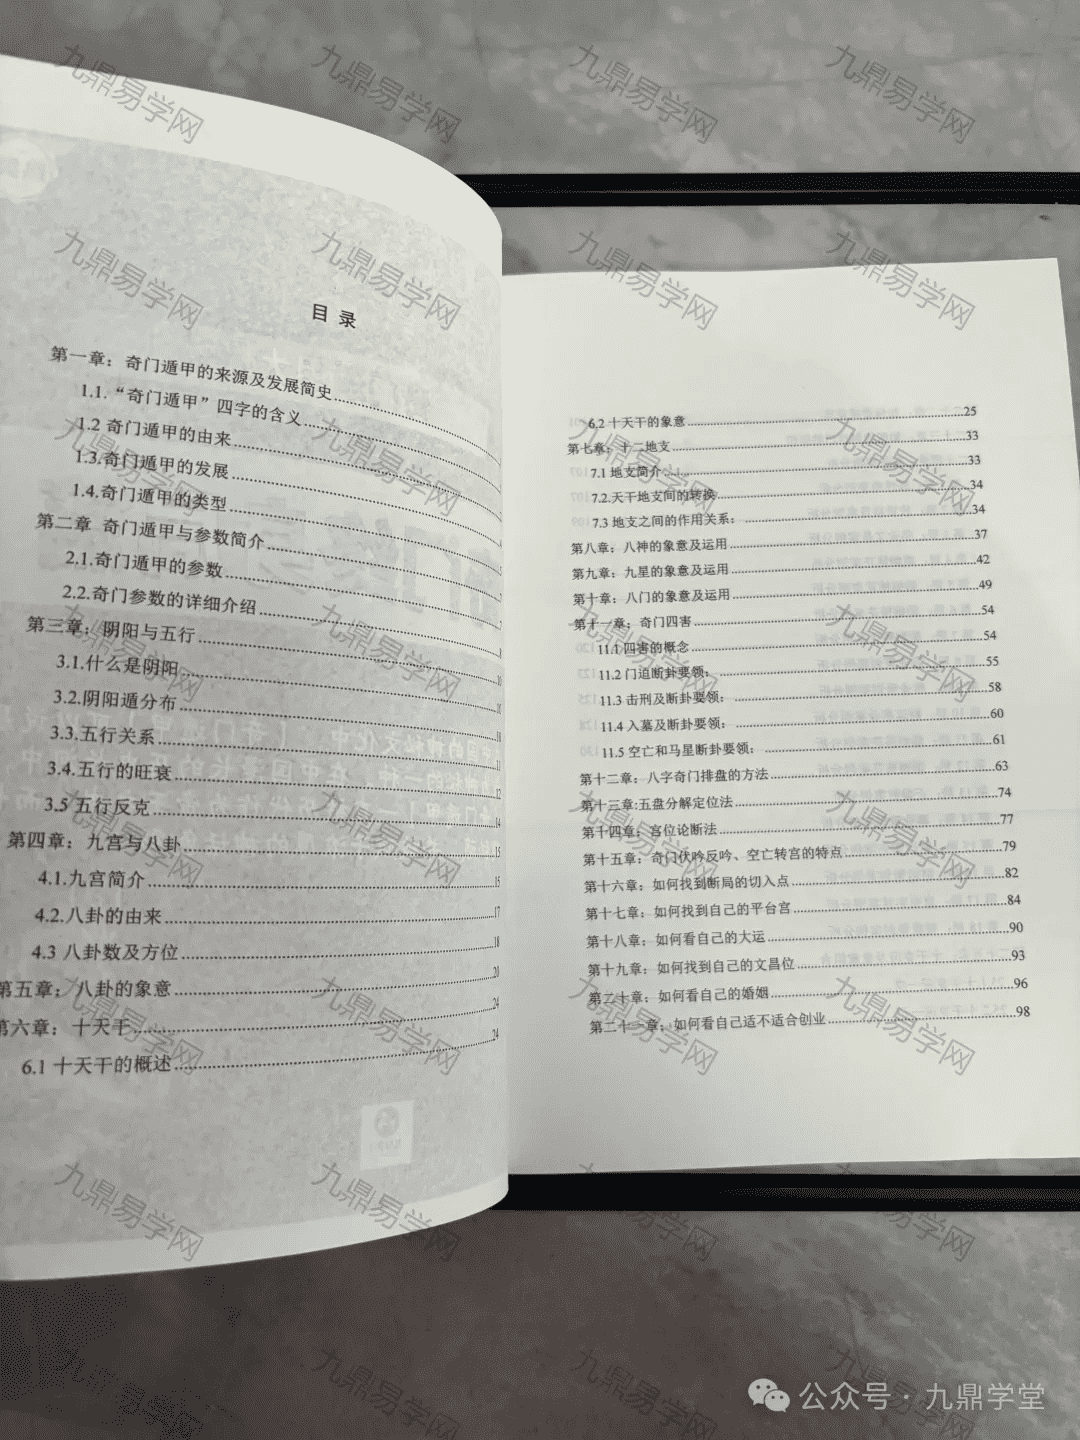 目 录
第一章：奇门遁甲的来源及发展简史
1.1.“奇门遁甲”四字的含义
1.2 奇门遁甲的由来
1.3.奇门遁甲的发展
1.4.奇门遁甲的类型
第二章 奇门遁甲与参数简介
2.1.奇门遁甲的参数
2.2.奇门参数的详细介绍
第三章：阴阳与五行
3.1.什么是阴阳
3.2.阴阳遁分布
3.3.五行关系
3.4.五行的旺衰
3.5 五行反克
第四章：九宫与八卦
4.1.九宫简介
4.2.八卦的由来
4.3 八卦数及方位
第五章：八卦的象意
第六章：十天干
6.1 十天干的概述
6.2 十天干的象意 25
第七章：十二地支 33
7.1 地支简介： 33
7.2.天干地支间的转换 34
7.3 地支之间的作用关系： 34
第八章：八神的象意及运用 37
第九章：九星的象意及运用 42
第十章：八门的象意及运用 49
第十一章：奇门四害 54
11.1 四害的概念 54
11.2 门迫断卦要领： 55
11.3 击刑及断卦要领： 58
11.4 入墓及断卦要领： 60
11.5 空亡和马星断卦要领： 61
第十二章：八字奇门排盘的方法 63
第十三章:五盘分解定位法 74
第十四章：宫位论断法 77
第十五章：奇门伏吟反吟、空亡转宫的特点 79
第十六章：如何找到断局的切入点 82
第十七章：如何找到自己的平台宫 84
第十八章：如何看自己的大运 90
第十九章：如何找到自己的文昌位 93
第二十章：如何看自己的婚姻 96
第二十一章：如何看自己适不适合创业 98
九鼎易学网
公众号·九鼎学堂